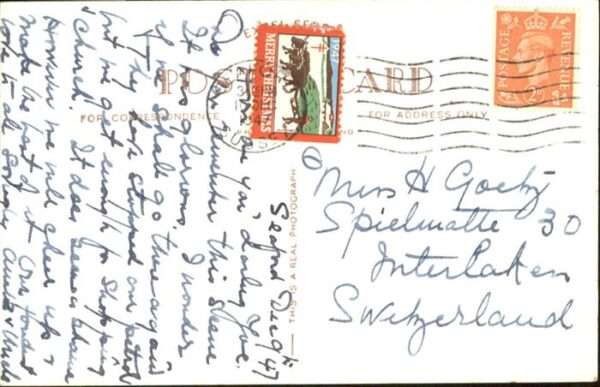 POST CARD
FOR CORRESPONDENCE
FOR ADDRESS ONLY
THIS IS A REAL PHOTOGRAPH
1947
MERRY CHRISTMAS
POSTAGE
REVENUE
Miss H Goetz
Spielmatte 30
Interlaken
Switzerland
Seaford Dec 9th 47
How are you, darling
Can remember this
It is glorious. I wonder
if we shall go there again
They have stopped our petrol
but we get enough for shopping
& church. It does seem a shame
However we will cheer up &
make the best of it. Our fondest
love to all